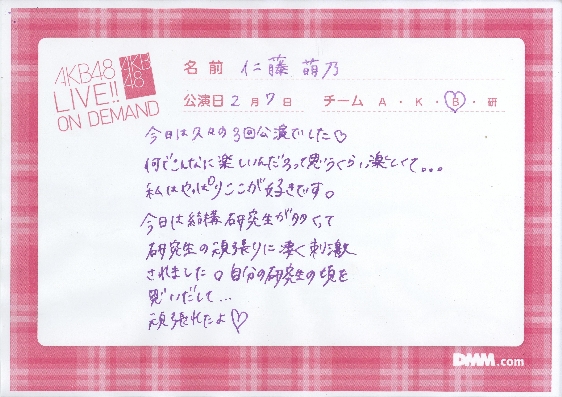 AKB48
LIVE!!
ON DEMAND
AKB
48
名前 仁藤 萌乃
公演日 2月7日 チーム A・K・B・研
今日は久々の3回公演でした♡
何でこんなに楽しいんだろって思うくらい楽しくて...
私はやっぱりここが好きです。
今日は結構研究生が多くって
研究生の頑張りに凄く刺激
されました。自分の研究生の頃を
思いだして...
頑張れたよ♡
DMM.com